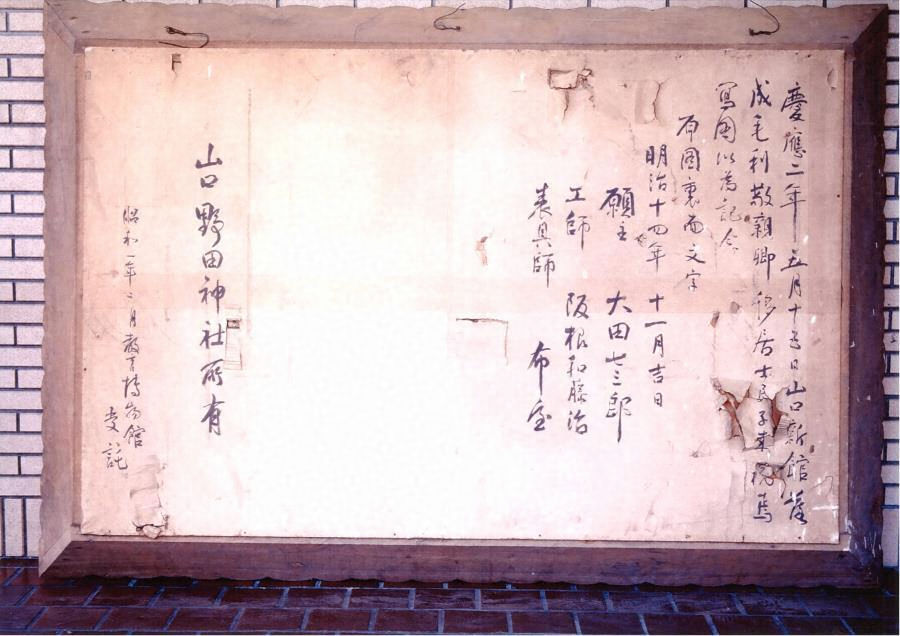 慶應二年五月十五日山口新館落
成毛利敬親卿移居士民子来祝焉
写図以為記念
右図裏面文字
明治十四年十一月吉日
願主 大田七三郎
工師 阪根和藤治
表具師 布屋
山口野田神社所有
昭和 年 月教育博物館
受託